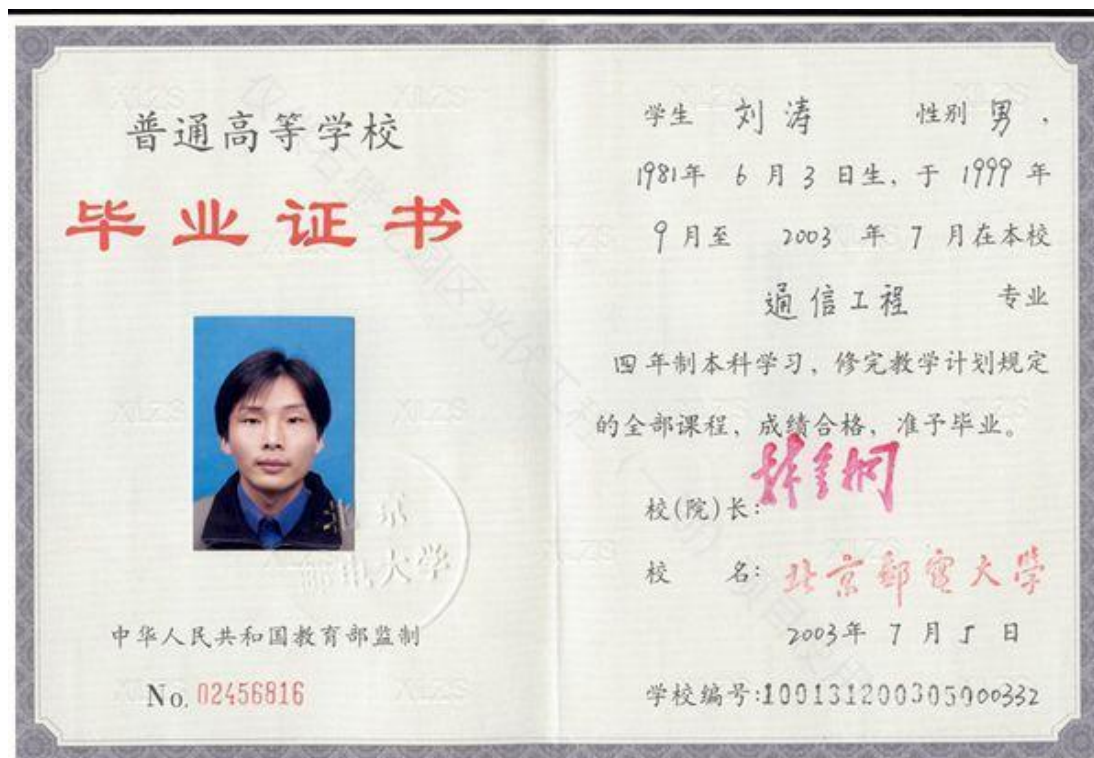 普通高等学校
毕业证书
北京
邮电大学
中华人民共和国教育部监制
No. 02456816
学生 刘涛 性别 男,
1981年 6 月 3 日生, 于 1999 年
9 月至 2003 年 7 月在本校
通信工程 专业
四 年制本科学习, 修完教学计划规定
的全部课程, 成绩合格, 准予毕业。
校(院)长:
校 名: 北京邮电大学
2003年 7 月 5 日
学校编号:100131200305000332